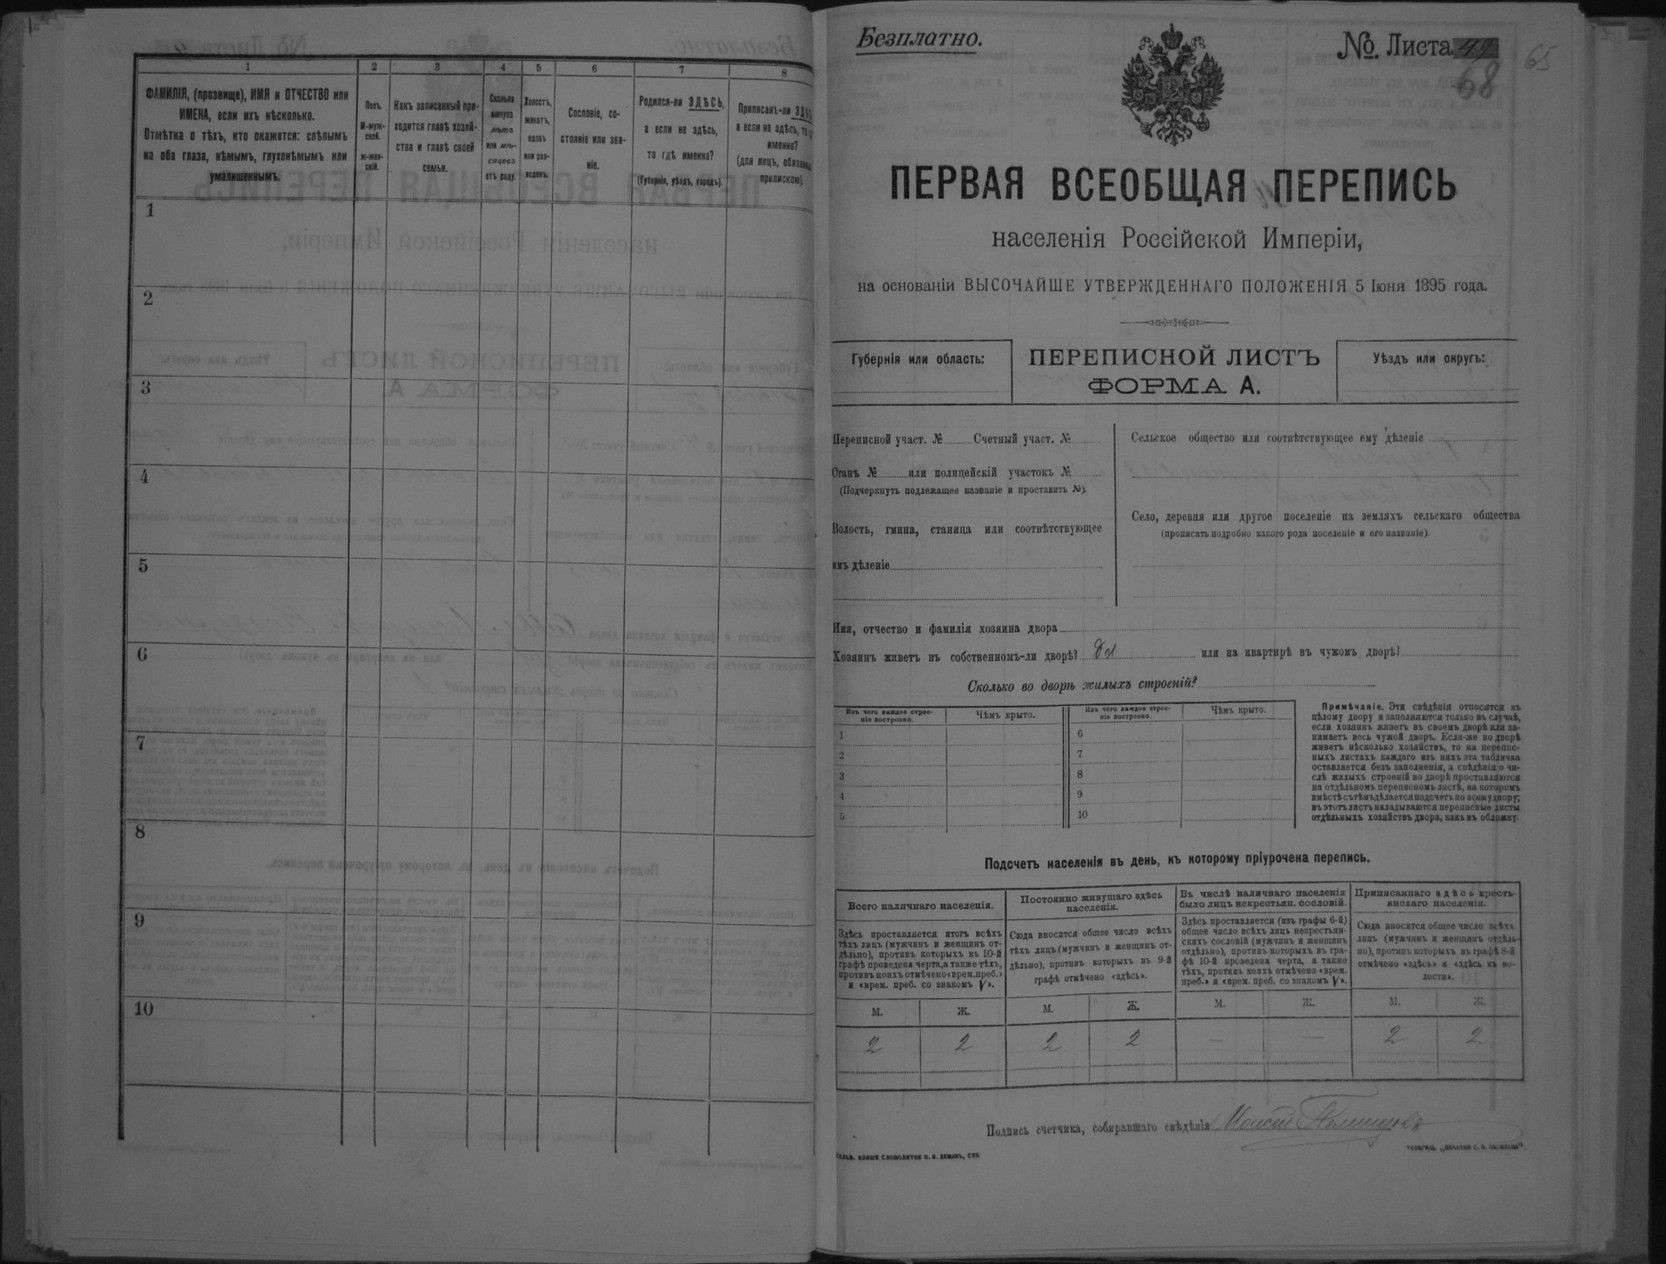 1 2 3 4 5 6 7 8
ФАМИЛІЯ, (прозвище), ИМЯ и ОТЧЕСТВО или
ИМЕНА, если ихъ нѣсколько.
Отмѣтка о тѣхъ, кто окажется: слѣпымъ
на оба глаза, нѣмымъ, глухонѣмымъ или
умалишеннымъ.
Полъ.
М-муж-
ской.
ж-жен-
скій.
Какъ записанный при-
ходится главѣ хозяй-
ства и главѣ своей
семьи.
Сколько
минуло
лѣтъ
или мѣ-
сяцевъ
отъ роду.
Холостъ,
женатъ,
вдовъ
или раз-
веденъ.
Сословіе, со-
стояніе или зва-
ніе.
Родился-ли ЗДѢСЬ,
а если не здѣсь,
то гдѣ именно?
(Губернія, уѣздъ, городъ).
Приписанъ-ли
а если не здѣсь,
именно?
(для лицъ,
припискою).
1
2
3
4
5
6
7
8
9
10
Безплатно.
№. Листа
68
65
ПЕРВАЯ ВСЕОБЩАЯ ПЕРЕПИСЬ
населенія Россійской Имперіи,
на основаніи ВЫСОЧАЙШЕ УТВЕРЖДЕННАГО ПОЛОЖЕНІЯ 5 Іюня 1895 года.
Губернія или область:
ПЕРЕПИСНОЙ ЛИСТЪ
ФОРМА А.
Уѣздъ или округъ:
Переписной участ. № Счетный участ. №
Станъ № или полицейскій участокъ №
(Подчеркнуть подлежащее названіе и проставить №).
Волость, гмина, станица или соотвѣтствующее
имъ дѣленіе
Сельское общество или соотвѣтствующее ему дѣленіе
Село, деревня или другое поселеніе на земляхъ сельскаго общества
(прописать подробно какого рода поселеніе и его названіе).
Имя, отчество и фамилія хозяина двора
Хозяинъ живетъ въ собственномъ-ли дворѣ? Да или на квартирѣ въ чужомъ дворѣ?
Сколько во дворѣ жилыхъ строеній?
Изъ чего каждое строе-
ніе построено.
Чѣмъ крыто.
Изъ чего каждое строе-
ніе построено.
Чѣмъ крыто.
1 6
2 7
3 8
4 9
5 10
Примѣчаніе. Эти свѣдѣнія относятся къ
цѣлому двору и заполняются только въ случаѣ,
если хозяинъ живетъ въ своемъ дворѣ или за-
нимаетъ весь чужой дворъ. Если-же во дворѣ
живетъ нѣсколько хозяйствъ, то на перепис-
ныхъ листахъ каждаго изъ нихъ эта табличка
оставляется безъ заполненія, а свѣдѣнія о чи-
слѣ жилыхъ строеній во дворѣ проставляются
на отдѣльномъ переписномъ листѣ, на которомъ
вмѣстѣ съ тѣмъ дѣлается подсчетъ по всему двору;
въ этотъ листъ вкладываются переписные листы
отдѣльныхъ хозяйствъ двора, какъ въ обложку.
Подсчетъ населенія въ день, къ которому пріурочена перепись.
Всего наличнаго населенія.
Постоянно живущаго здѣсь
населенія.
Въ числѣ наличнаго населенія
было лицъ некрестьян. сословій.
Приписаннаго здѣсь кресть-
янскаго населенія.
Здѣсь проставляется итогъ всѣхъ
тѣхъ лицъ (мужчинъ и женщинъ от-
дѣльно), противъ которыхъ въ 10-й
графѣ проведена черта, а также тѣхъ,
противъ коихъ отмѣчено «врем. преб.»
и «врем. преб. со знакомъ V».
Сюда вносится общее число всѣхъ
тѣхъ лицъ (мужчинъ и женщинъ от-
дѣльно), противъ которыхъ въ 9-й
графѣ отмѣчено «здѣсь».
Здѣсь проставляется (изъ графы 6-й)
общее число всѣхъ лицъ некрестьян-
скихъ сословій (мужчинъ и женщинъ
отдѣльно), противъ которыхъ въ гра-
фѣ 10-й проведена черта, а также
тѣхъ, противъ коихъ отмѣчено «врем.
преб.» и «врем. преб. со знакомъ V».
Сюда вносится общее число всѣхъ
лицъ (мужчинъ и женщинъ отдѣль-
но), противъ которыхъ въ графѣ 8-й
отмѣчено «здѣсь» и «здѣсь въ во-
лости».
М. Ж. М. Ж. М. Ж. М. Ж.
2 2 2 2 — — 2 2
Подпись счетчика, собиравшаго свѣдѣнія